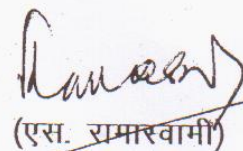 (एस. रामास्वामी)